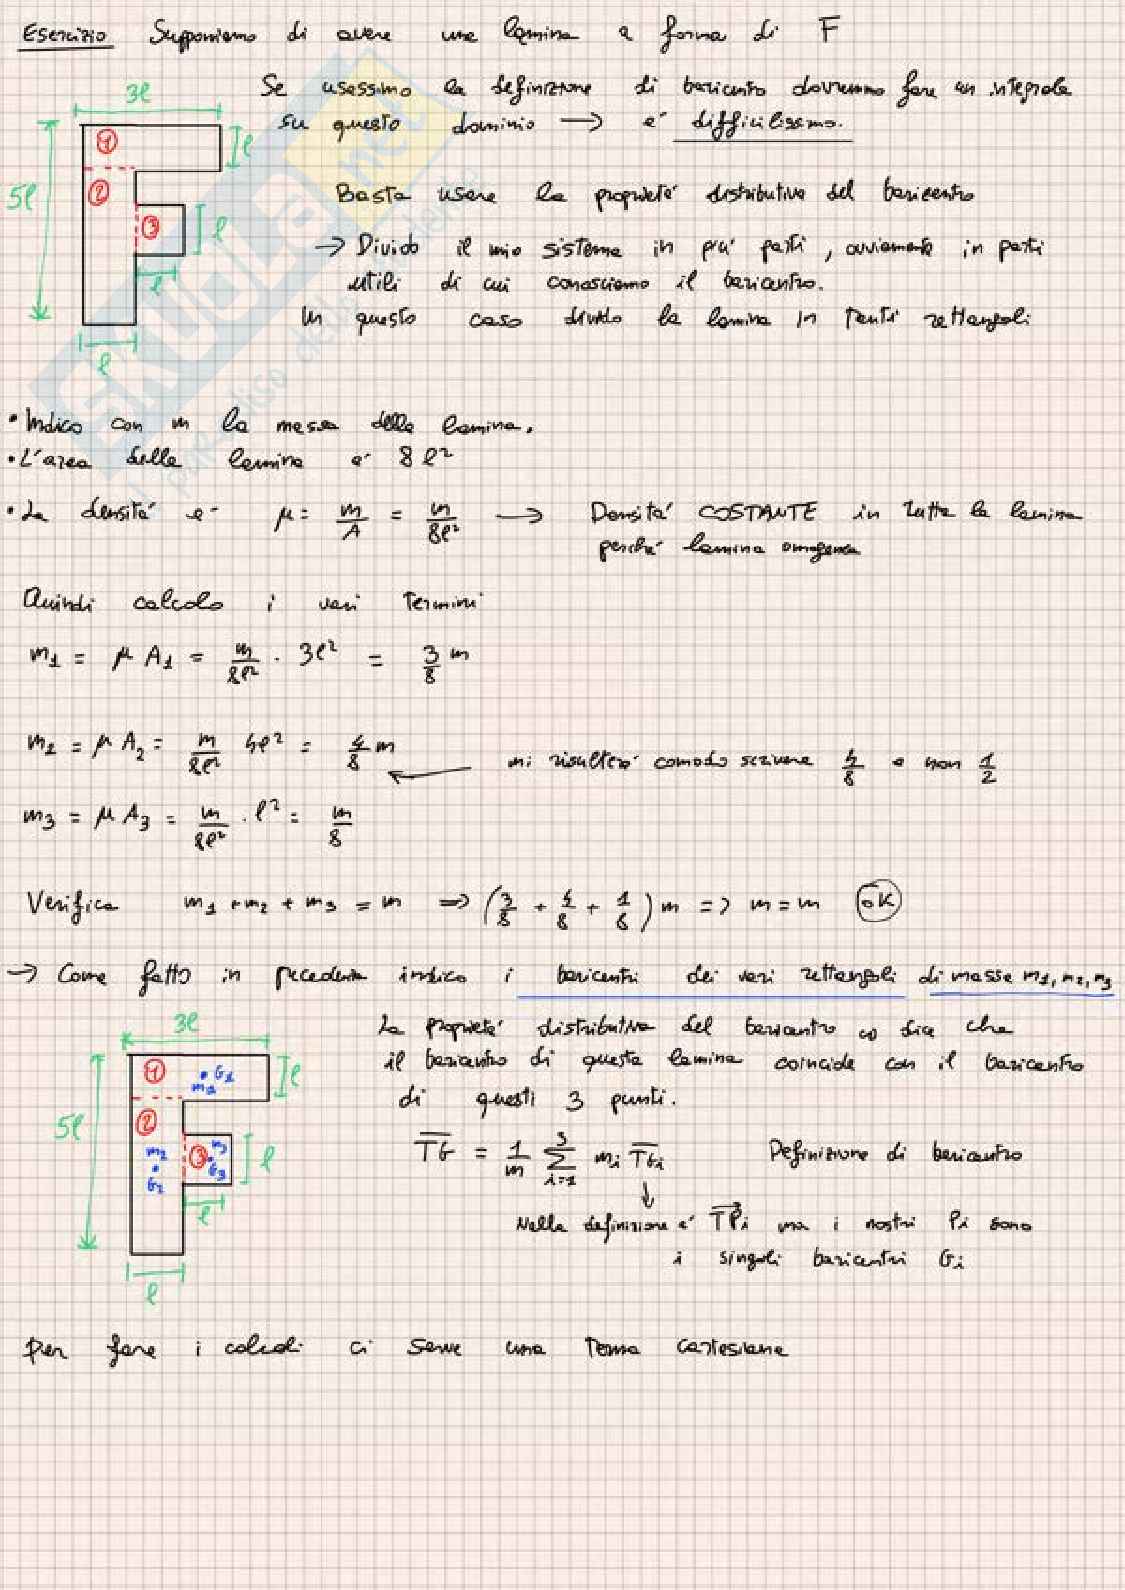 Esercizio Supponiamo di avere una lamina a forma di F
Se usassimo la definizione di baricentro dovremmo fare un integrale
su questo dominio → e' difficilissimo.
3l
l
5l
①
②
③
l
l
l
Basta usare la proprietà distributiva del baricentro
→ Divido il mio sistema in più parti, ovviamente in parti
utili di cui conosciamo il baricentro.
In questo caso divido la lamina in tanti rettangoli
• Indico con m la massa della lamina.
• L'area della lamina e' 8l²
• La densità e' μ = m/A = m/8l² → Densità COSTANTE in tutta la lamina
perché lamina omogenea
Quindi calcolo i vari termini
m1 = μ A1 = m/8l² · 3l² = 3/8 m
m2 = μ A2 = m/8l² 4l² = 4/8 m ← mi risulterà comodo scrivere 4/8 e non 1/2
m3 = μ A3 = m/8l² · l² = m/8
Verifica m1 + m2 + m3 = m ⇒ (3/8 + 4/8 + 1/8) m ⇒ m = m OK
→ Come fatto in precedenza indico i baricentri dei vari rettangoli di masse m1, m2, m3
La proprietà distributiva del baricentro ci dice che
il baricentro di questa lamina coincide con il baricentro
di questi 3 punti.
3l
l
5l
① G1 m1
②
m2
G2
③ m3
G3
l
l
l
TG = 1/m Σ i=1 3 mi TGi Definizione di baricentro
↓
Nella definizione e' TPi ma i nostri Pi sono
i singoli baricentri Gi
Per fare i calcoli ci serve una terna cartesiana
SKUOLA.net